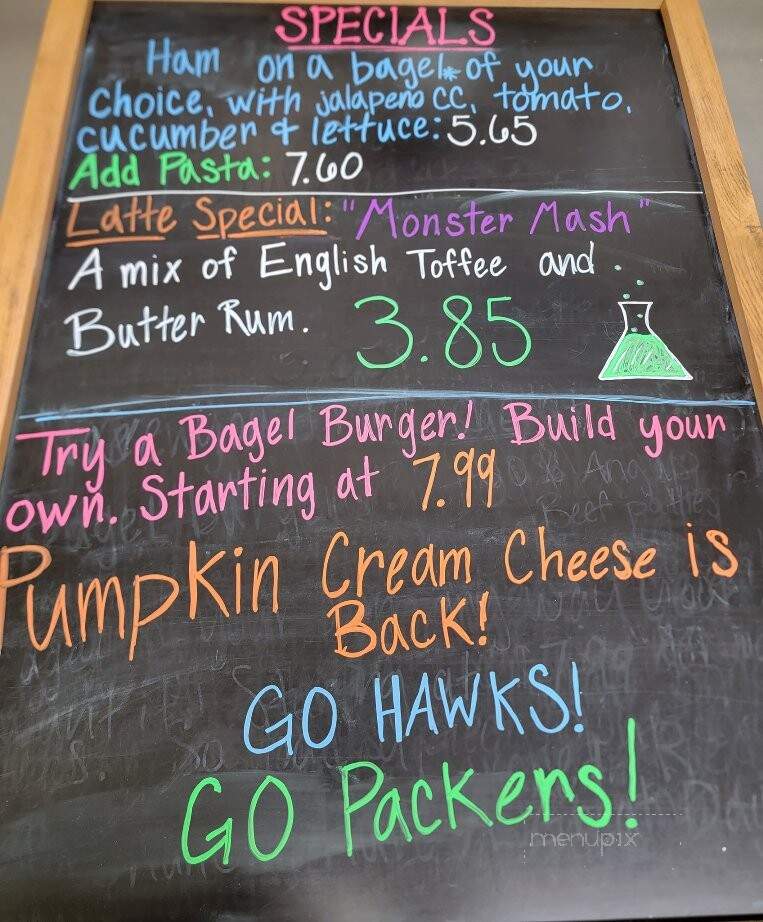 SPECIALS
Ham on a bagel* of your
Choice, with jalapeno CC, tomato,
cucumber & lettuce: 5.65
Add Pasta: 7.60
Latte Special: "Monster Mash"
A mix of English Toffee and
Butter Rum. 3.85
Try a Bagel Burger! Build your
own. Starting at 7.99
Pumpkin Cream Cheese is
Back!
GO HAWKS!
GO Packers!
menupix